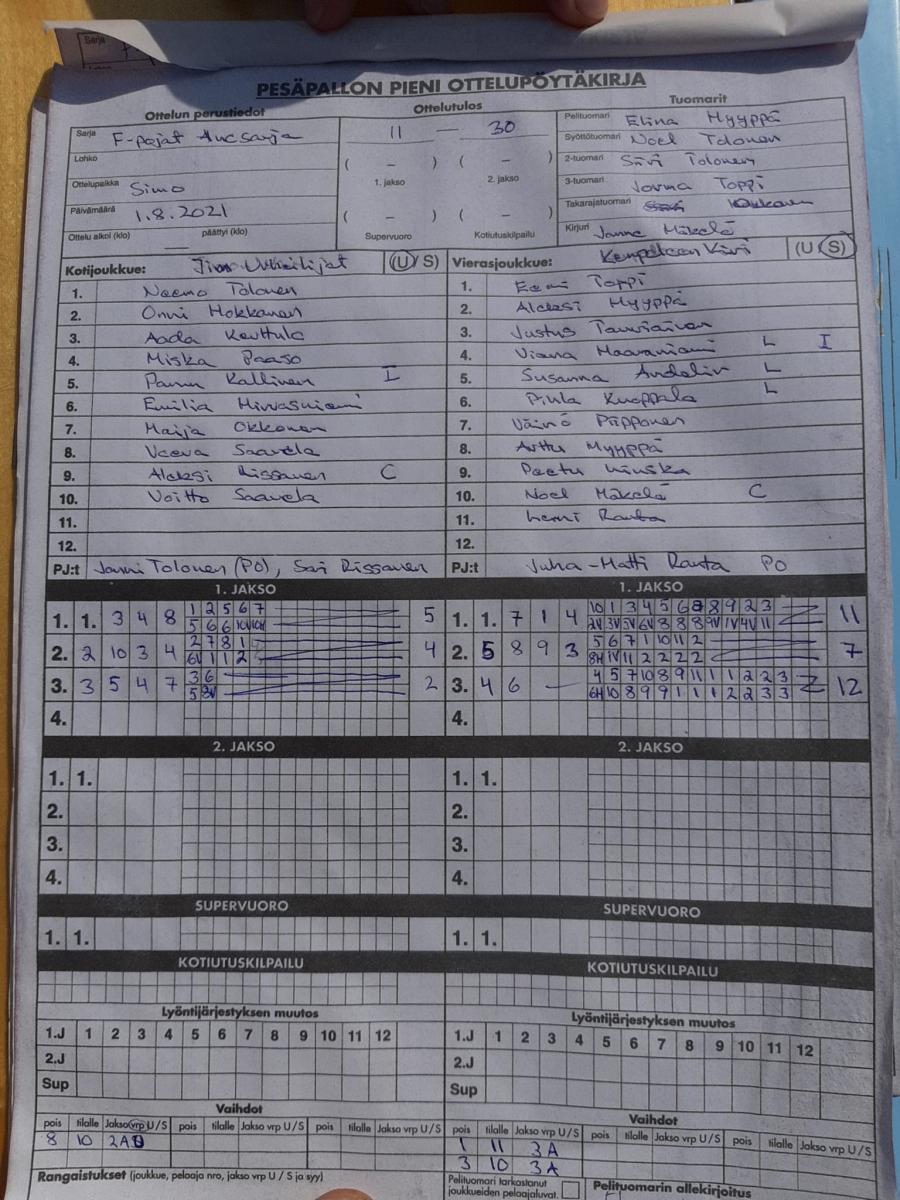 Sarja
PESÄPALLON PIENI OTTELUPÖYTÄKIRJA
Ottelun perustiedot
Sarja F-pojat Aluesarja
Lohko
Ottelupaikka Simo
Päivämäärä 1.8.2021
Ottelu alkoi (klo) päättyi (klo)
Ottelutulos
11 — 30
( – ) ( – )
1. jakso 2. jakso
( – ) ( – )
Supervuoro Kotiutuskilpailu
Tuomarit
Pelituomari Elina Myyppä
Syöttötuomari Noel Tolonen
2-tuomari Siiri Tolonen
3-tuomari Jorma Toppi
Takarajatuomari
Kirjuri Janne Mäkelä
Kotijoukkue: Urheilijat (U/S)
1. Neemo Tolonen
2. Onni Hokkanen
3. Aada Keuttula
4. Miska Paaso
5. Panun Kallinen I
6. Emilia Hirvasniemi
7. Maija Okkonen
8. Veeva Saavela
9. Aleksi Rissanen C
10. Voitto Saavela
11.
12.
PJ:t Janni Tolonen (PO), Sari Rissanen
Vierasjoukkue: Kempeleen Kiri (U/S)
1. Eemi Toppi
2. Aleksi Myyppä
3. Justus Tauriainen
4. Viana Haaraniemi L I
5. Susanna Andelin L
6. Pihla Kuoppala L
7. Väinö Piipponen
8. Arttu Myyppä
9. Peetu
10. Noel Mäkelä C
11. Lenni Rauta
12.
PJ:t Juha-Matti Rauta PO
1. JAKSO
1. 1. 3 4 8 1 2 5 6 7 5
5 6 6 10V 10H
2. 2 10 3 4 2 7 8 1 4
6V 1 1 2
3. 3 5 4 7 3 6 2
5 8V
4.
2. JAKSO
1. 1.
2.
3.
4.
SUPERVUORO
1. 1.
KOTIUTUSKILPAILU
Lyöntijärjestyksen muutos
1.J 1 2 3 4 5 6 7 8 9 10 11 12
2.J
Sup
Vaihdot
pois tilalle Jakso vrp U/S pois tilalle Jakso vrp U/S pois tilalle Jakso vrp U/S
8 10 2A
Rangaistukset (joukkue, pelaaja nro, jakso vrp U / S ja syy)
1. JAKSO
1. 1. 7 1 4 10 1 3 4 5 6 8 8 9 2 3 11
2V 3V 5V 6V 8 8 8 9V 1V 4V 11
2. 5 8 9 3 5 6 7 1 10 11 2 7
8H 1V 11 2 2 2 2
3. 4 6 — 4 5 7 10 8 9 11 1 1 2 2 3 12
6H 10 8 9 9 1 1 1 2 2 3 3
4.
2. JAKSO
1. 1.
2.
3.
4.
SUPERVUORO
1. 1.
KOTIUTUSKILPAILU
Lyöntijärjestyksen muutos
1.J 1 2 3 4 5 6 7 8 9 10 11 12
2.J
Sup
Vaihdot
pois tilalle Jakso vrp U/S pois tilalle Jakso vrp U/S pois tilalle Jakso vrp U/S
1 11 3A
3 10 3A
Pelituomari tarkastanut
joukkueiden pelaajaluvat.
Pelituomarin allekirjoitus